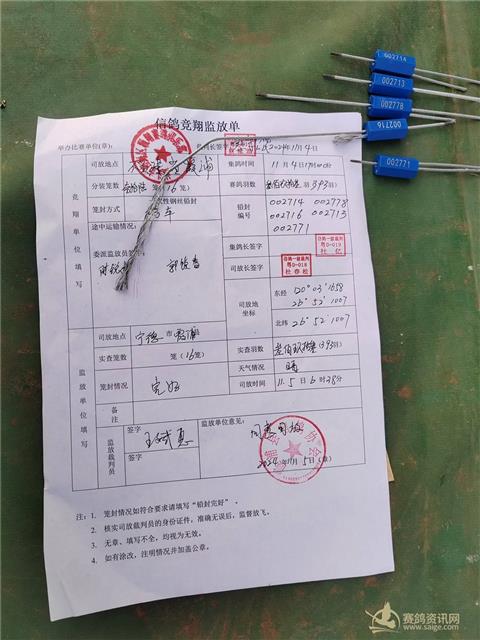 002714
002713
002778
002716
002771
信鸽竞翔监放单
举办比赛单位(章):
集鸽长签字
2024年11月4日
竞翔单位填写
司放地点
霞浦
集鸽时间
11月4日17时00分
分装笼数
笼(16笼)
赛鸽羽数
393羽
笼封方式
性钢丝铅封
铅封编号
002714 002778
002716 002713
002771
途中运输情况:
集鸽长签字
信鸽一级裁判
粤D-019
杜仁
委派监放员签
司放长签字
信鸽一级裁判
粤D-018
杜春松
司放地坐标
东经
120°03′1658
26°52′1007
北纬
26°52′1007
监放单位填写
司放地点
宁德市霞浦
实查笼数
笼(16笼)
实查羽数
叁佰玖拾叁(393羽)
天气情况
晴
笼封情况
完好
司放时间
11月5日6时28分
备注
监放裁判员
签字
签字
监放单位意见:
同意司放
2024年11月5日(章)
注:1. 笼封情况如符合要求请填写“铅封完好”。
2. 核实司放裁判员的身份证件,准确无误后,监督放飞。
3. 无章、填写不全,均视为无效。
4. 如有涂改,注明情况并加盖公章。
赛鸽资讯网
www.saige.com